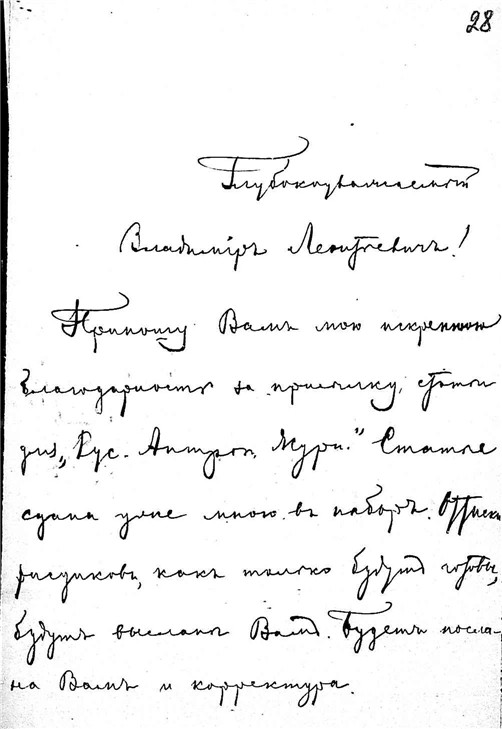 28
Глубокоуважаемый
Владимiръ Леонтьевичъ!
Приношу Вамъ мою искреннюю
благодарность за присылку статьи
для „Рус. Антроп. Журн.“ Статья
сдана уже мною въ наборъ. Оттиски
рисунковъ, какъ только будутъ готовы,
будутъ высланы Вамъ. Будетъ посла-
на Вамъ и корректура.